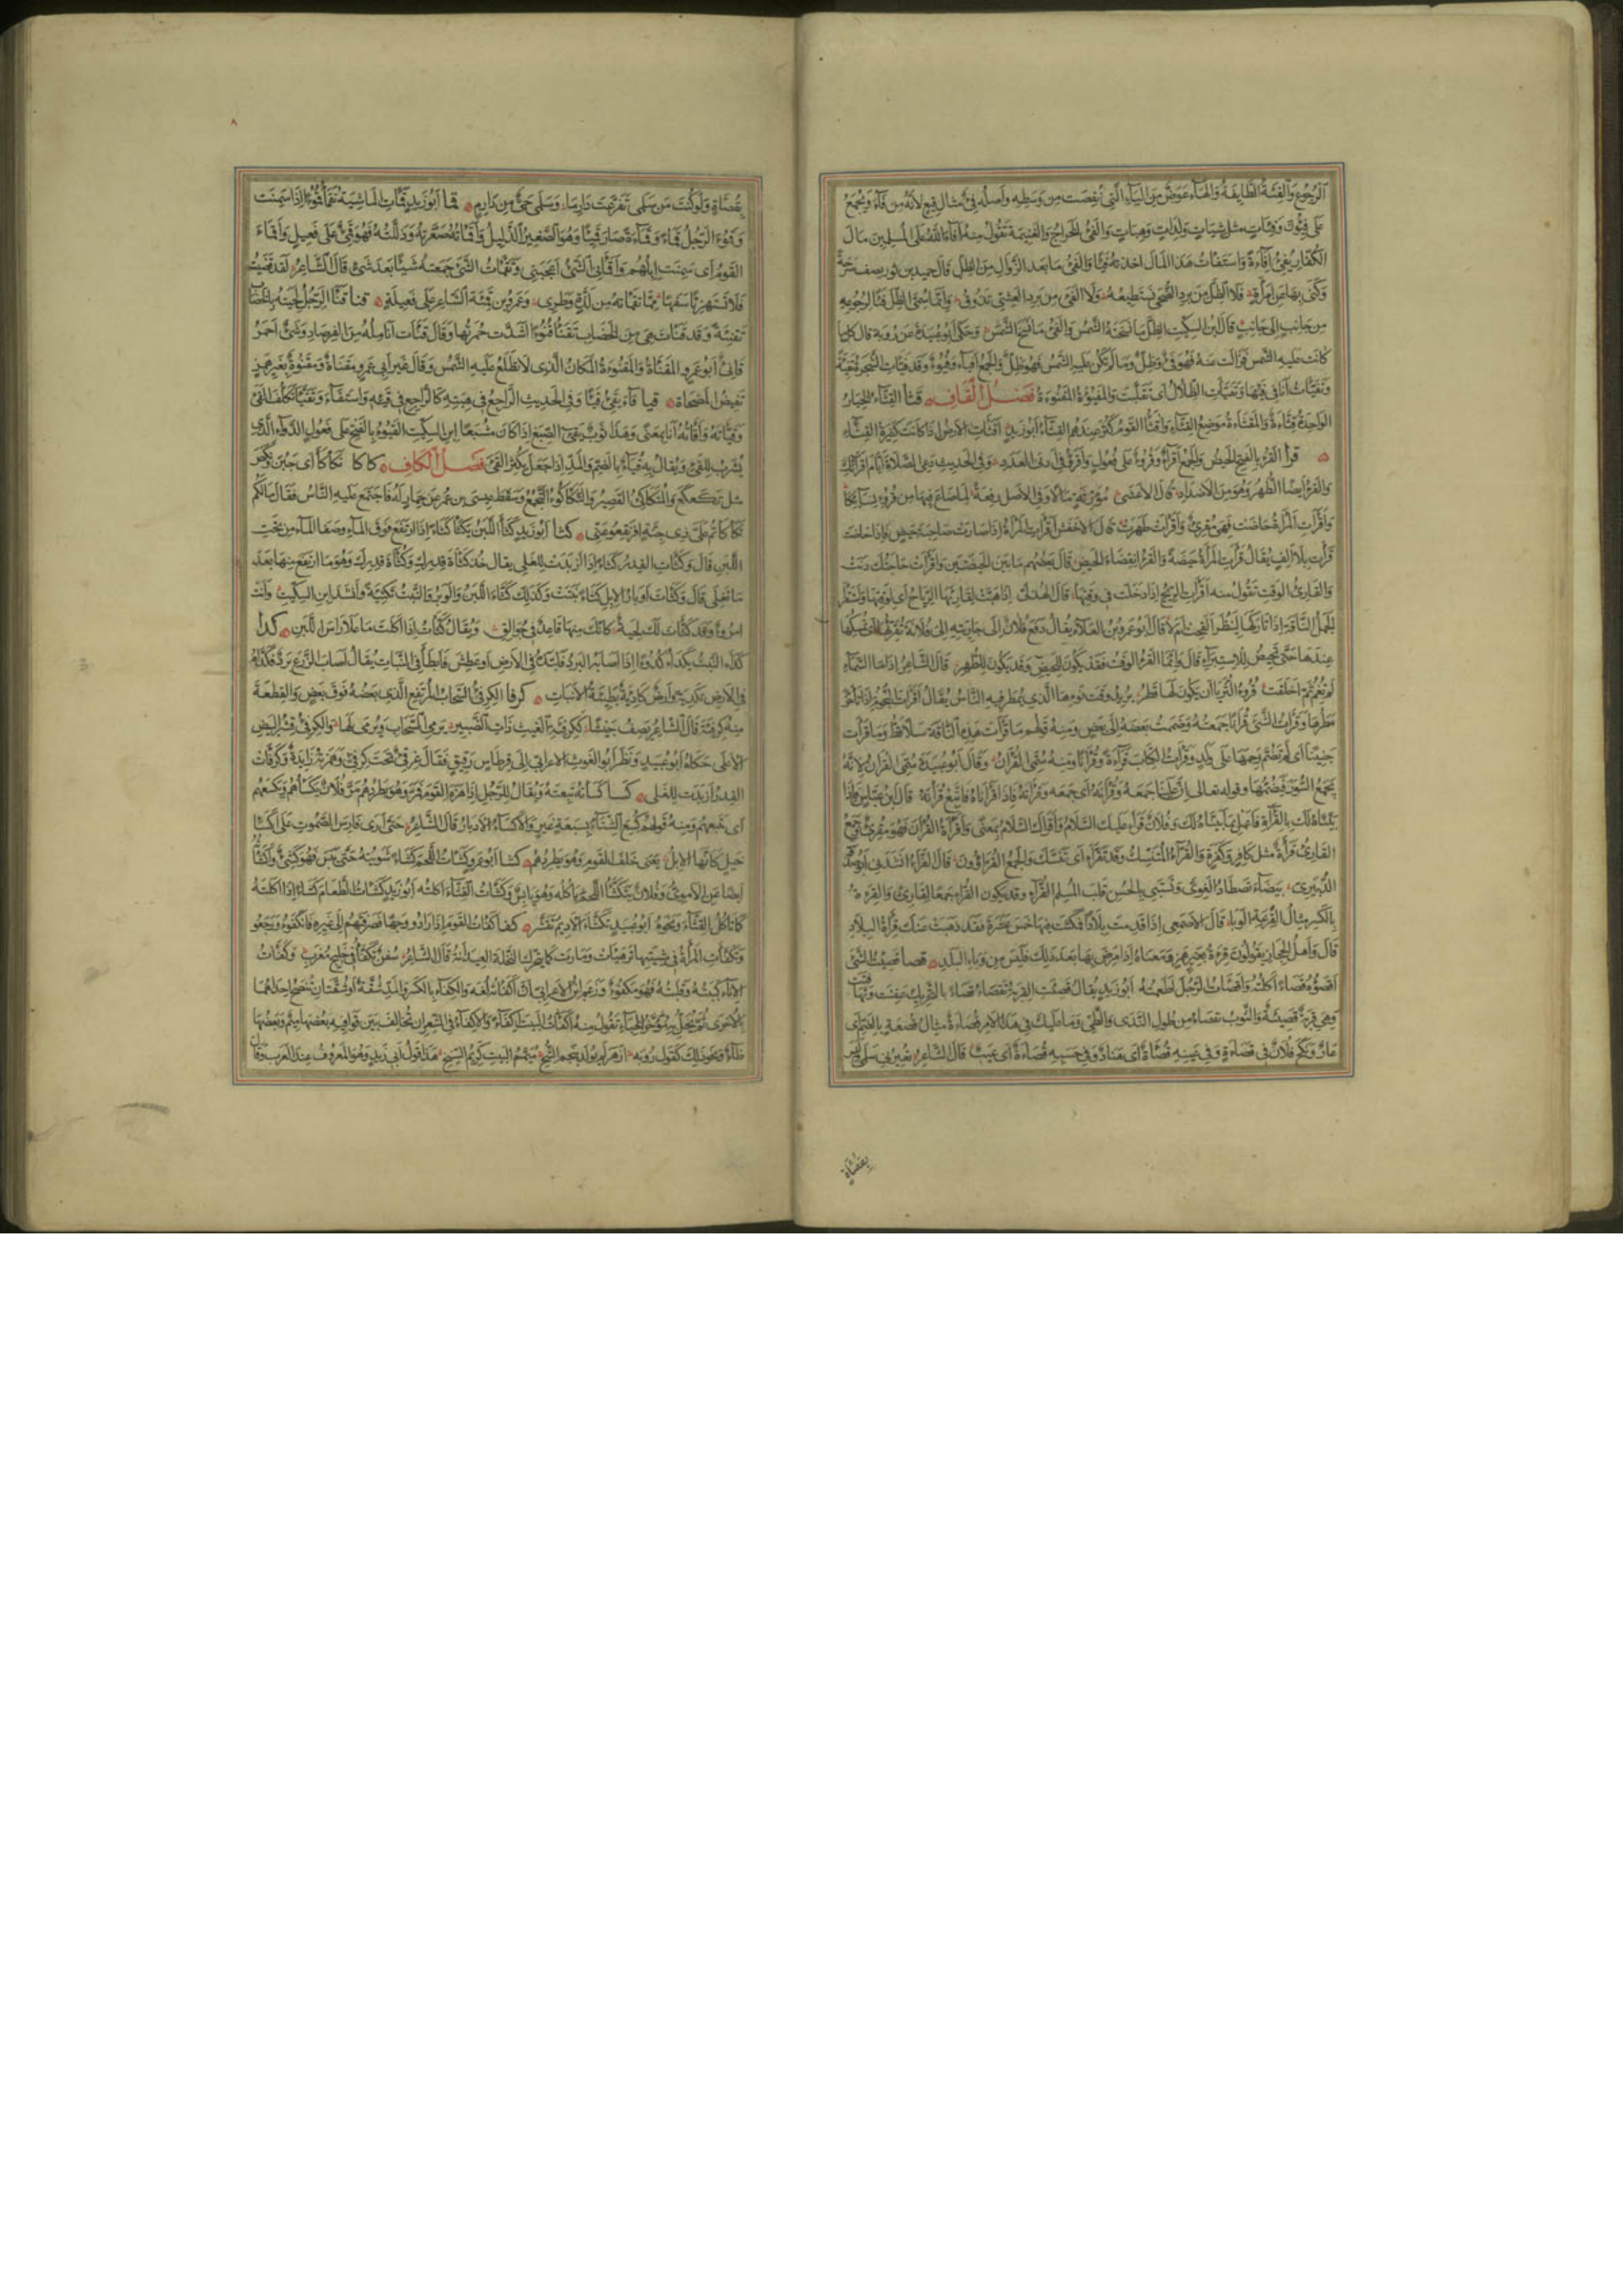 الرجوع والفئة الطايفة والهاء عوض من الياء التي نقصت من وسطه واصله فئ مثال فيع لانه من فاء ويجمع
على فئون وفئات مثل شيات ولدات وهبات والفئ الخراج والغنيمة تقول منه افاء الله على المسلمين مال
الكفار يفئ افاءة واستفأت هذا المال اخذته فيئا والفئ ما بعد الزوال من الظل قال حميد بن ثور يصف سرحة
وكنى بها عن امرأة فلا الظل من برد الضحى تستطيعه ولا الفئ من برد العشي تذوق وانما سمى الظل فيئا لرجوعه
من جانب الى جانب قال ابن السكيت الظل ما نسخته الشمس والفئ ما نسخ الشمس وحكى ابو عبيدة عن رؤبة قال كل ما
كانت عليه الشمس فزالت عنه فهو فئ وظل وما لم تكن عليه الشمس فهو ظل والجمع افياء وفيوء وقد فيأت الشجرة تفيئة
وتفيأت انا في فيئها وتفيأت الظلال اى تقلبت والمفيؤة المقنوءة فصل القاف قثأ القثاء الخيار
الواحدة قثاءة والمقثأة موضع القثاء واقثأ القوم كثر عندهم القثاء ابو زيد اقثأت الارض اذا كانت كثيرة القثاء
قرأ القرء بالفتح الحيض والجمع اقراء وقروء على فعول واقرؤ في ادنى العدد وفي الحديث دعى الصلاة ايام اقرائك
والقرء ايضا الطهر وهو من الاضداد قال الاعشى مورثة مالا وفي الاصل رفعة لما ضاع فيها من قروء نسائكا
واقرأت المرأة حاضت فهي مقرئ واقرأت طهرت قال الاخفش اقرأت المرأة اذا صارت صاحبة حيض فاذا حاضت
قرأت بلا الف يقال قرأت المرأة حيضة والقرء انقضاء الحيض قال بعضهم ما بين الحيضتين واقرأت حاجتك دنت
والقارئ الوقت تقول منه اقرأت الريح اذا دخلت في وقتها قال الهذلي اذا هبت لقارئها الرياح اى لوقتها واستقرأ
الجمل الناقة اذا تاركها لينظر القحت ام لا قال ابو عمرو بن العلاء يقال دفع فلان الى جاريته الى فلانة تقرئها اى تمسكها
عندها حتى تحيض للاستبراء قال وانما القرء الوقت فقد يكون للحيض وقد يكون للطهر قال الشاعر اذا ما السماء
لم تغم ثم اخلفت قروء الثريا ان يكون لها قطر يريد وقت نوءها الذي يمطر فيه الناس يقال اقرأت النجوم اذا تاخر
مطرها وقرأت الشئ قرأنا جمعته وضممت بعضه الى بعض ومنه قولهم ما قرأت هذه الناقة سلا قط وما قرأت
جنينا اى لم تضم رحمها على ولد وقرأت الكتاب قراءة وقرأنا ومنه سمى القرآن وقال ابو عبيدة سمى القرآن لانه
يجمع السور فيضمها وقوله تعالى ان علينا جمعه وقرآنه اى جمعه وقراءته فاذا قرأناه فاتبع قرآنه قال ابن عباس فاذا
بيناه لك بالقراءة فاعمل بما بيناه لك وفلان قرأ عليك السلام واقرأك السلام بمعنى واقرأه القرآن فهو مقرئ وجمع
القارئ قرأة مثل كافر وكفرة والقراء المتنسك وقد تقرأ اى تنسك والجمع القراؤون قال الفراء انشدني ابو صدقة
الدبيري بيضاء تصطاد الغوى وتستبي بالحسن قلب المسلم القراء وقد يكون القراء جمعا لقارئ والقرءة
بالكسر مثال القرعة الوباء قال الاصمعى اذا قدمت بلادا فمكثت فيها خمس عشرة فقد ذهبت عنك قرأة البلاد
قال واهل الحجاز يقولون قرة بغير همز ومعناه اذا مرض بها بعد ذلك فليس من وباء البلد قضأ قضئت الشئ
اقضؤه قضاء اكلته واقضأت الرجل اطعمته ابو زيد يقال قضئت القربة تقضأ قضاء بالتحريك عفنت وتهافتت
وهي قربة قضيئة والثوب يقضأ من طول الندى والطى وما عليك في هذا الامر قضأة مثال قضعة بالضم اى
عار ونكح فلان في قضاءة وفي عينه قضأة اى فساد وفي حسبه قضأة اى عيب قال الشاعر تعيرني سلمى وليس
بقضأة
بقضأة ولو كنت من سلمى تفرعت دارما وسلمى حى من دارم قمأ ابو زيد قمأت الماشية تقمأ قموءا اذا سمنت
وقمؤ الرجل قماء وقماءة صار قميئا وهو الصغير الذليل واقمأته صغرته وذللته فهو قمئ على فعيل واقماء
القوم اى سمنت ابلهم واقمأني الشئ اعجبني وتقمأت الشئ جمعته شيئا بعد شئ قال الشاعر لقد قضيت
فلا تستهزئا سفها مما تقمأته من لذة وطرى وعمرو بن قميئة الشاعر على فعيلة قنأ قنأ الرجل لحيته بالخضاب
تقنئة وقد قنأت هي من الخضاب تقنأ قنوءا اشتدت حمرتها وقال قنأت انامله من الفرصاد وشئ احمر
قانئ ابو عمرو المقنأة والمقنوءة المكان الذي لا تطلع عليه الشمس وقال غير ابي عمرو مقناة ومقنوة بغير همز
نقيض المضحاة قيأ قاء يقئ قيئا وفي الحديث الراجع في هبته كالراجع في قيئه واستقاء وتقيأ تكلف القئ
وقيأته واقأته انا بمعنى وهذا ثوب يقئ الصبغ اذا كان مشبعا ابن السكيت القيوء بالفتح على فعول الدواء الذي
يشرب للقئ ويقال به قياء بالضم والمد اذا جعل يكثر القئ فصل الكاف كأكأ تكأكأ اى جبن ونكص
مثل تكعكع والمتكأكئ القصير والتكأكؤ التجمع وسقط عيسى بن عمر عن حمار له فاجتمع عليه الناس فقال مالكم
تكأكأتم على تكأكؤكم على ذي جنة افرنقعوا عنى كثأ ابو زيد كثأ اللبن يكثأ كثأ اذا ارتفع فوق الماء وصفا الماء من تحت
اللبن قال وكثأت القدر كثأ اذا ازبدت للغلى يقال خذ كثأة قدرك وكثأة قدرك وهو ما ارتفع منها بعد
ما تغلى قال وكثأت اوبار الابل كثأ نبتت وكذلك كثأ اللبن والوبر والنبت تكثئة وانشد ابن السكيت وانت
امرؤ قد كثأت لك لحية كانك منها قاعد في جوالق ويقال كثأت اذا اكلت ما على راس اللبن كدأ
كدأ النبت يكدأ كدوءا اذا اصابه البرد فلبده في الارض او عطش فابطأ في النبات يقال اصاب الزرع برد فكدأه
في الارض تكدئة وارض كادئة بطيئة الانبات كرفأ الكرفئ السحاب المرتفع الذي بعضه فوق بعض والقطعة
منه كرفئة قال الشاعر يصف جيشا ككرفئة الغيث ذات الصبير يرمى السحاب ويرمى لها والكرفئ قشر البيض
الاعلى حكاه ابو عبيد ونظر ابو الغوث الاعرابي الى قرطاس رقيق فقال غرقئ تحت كرفئ وهمزته زايدة وكرفأت
القدر ازبدت للغلى كسأ كسأته تبعته ويقال للرجل اذا هزم القوم فمر وهو يطردهم مر فلان يكسأهم ويكسعهم
اى يتبعهم ومنه قولهم كسع الشتاء بسبعة غبر والاكساء الادبار قال الشاعر حتى ارى فارس الصموت على اكسا
خيل كانها الابل يعنى خلف القوم وهو يطردهم كشأ ابو عمرو كشأت اللحم كشأ شويته حتى يبس فهو كشئ واكشأته
ايضا عن الاموى وفلان يتكشأ اللحم ياكله وهو يابس وكشأت القثاء اكلته ابو زيد كشأت الطعام كشأ اذا اكلته
كما تأكل القثاء ونحوه ابو عبيد تكشأ الاديم تقشر كفأ اكفأت القوم اذا ارادوا وجها فصرفتهم الى غيره فانكفؤا ورجعوا
وتكفأت المرأة في مشيتها ترهيأت ومارت كما تتحرك النخلة العيدانة قال الشاعر سفن تكفأ في خليج مغرب وكفأت
الاناء كببته وقلبته فهو مكفوء وزعم ابن الاعرابي ان اكفأته لغة والكفاء بالكسر والمد شقة او شقتان تنصح احداهما
بالاخرى ثم يجعل به مؤخر الخباء تقول منه اكفأت البيت اكفاء والاكفاء في الشعر ان تخالف بين قوافيه بعضها ميم وبعضها
طاء ونحو ذلك كقول رؤبة ازهر لم يولد بنجم الشح ميمم البيت كريم السنخ هذا قول ابي زيد وهو المعروف عند العرب وقال